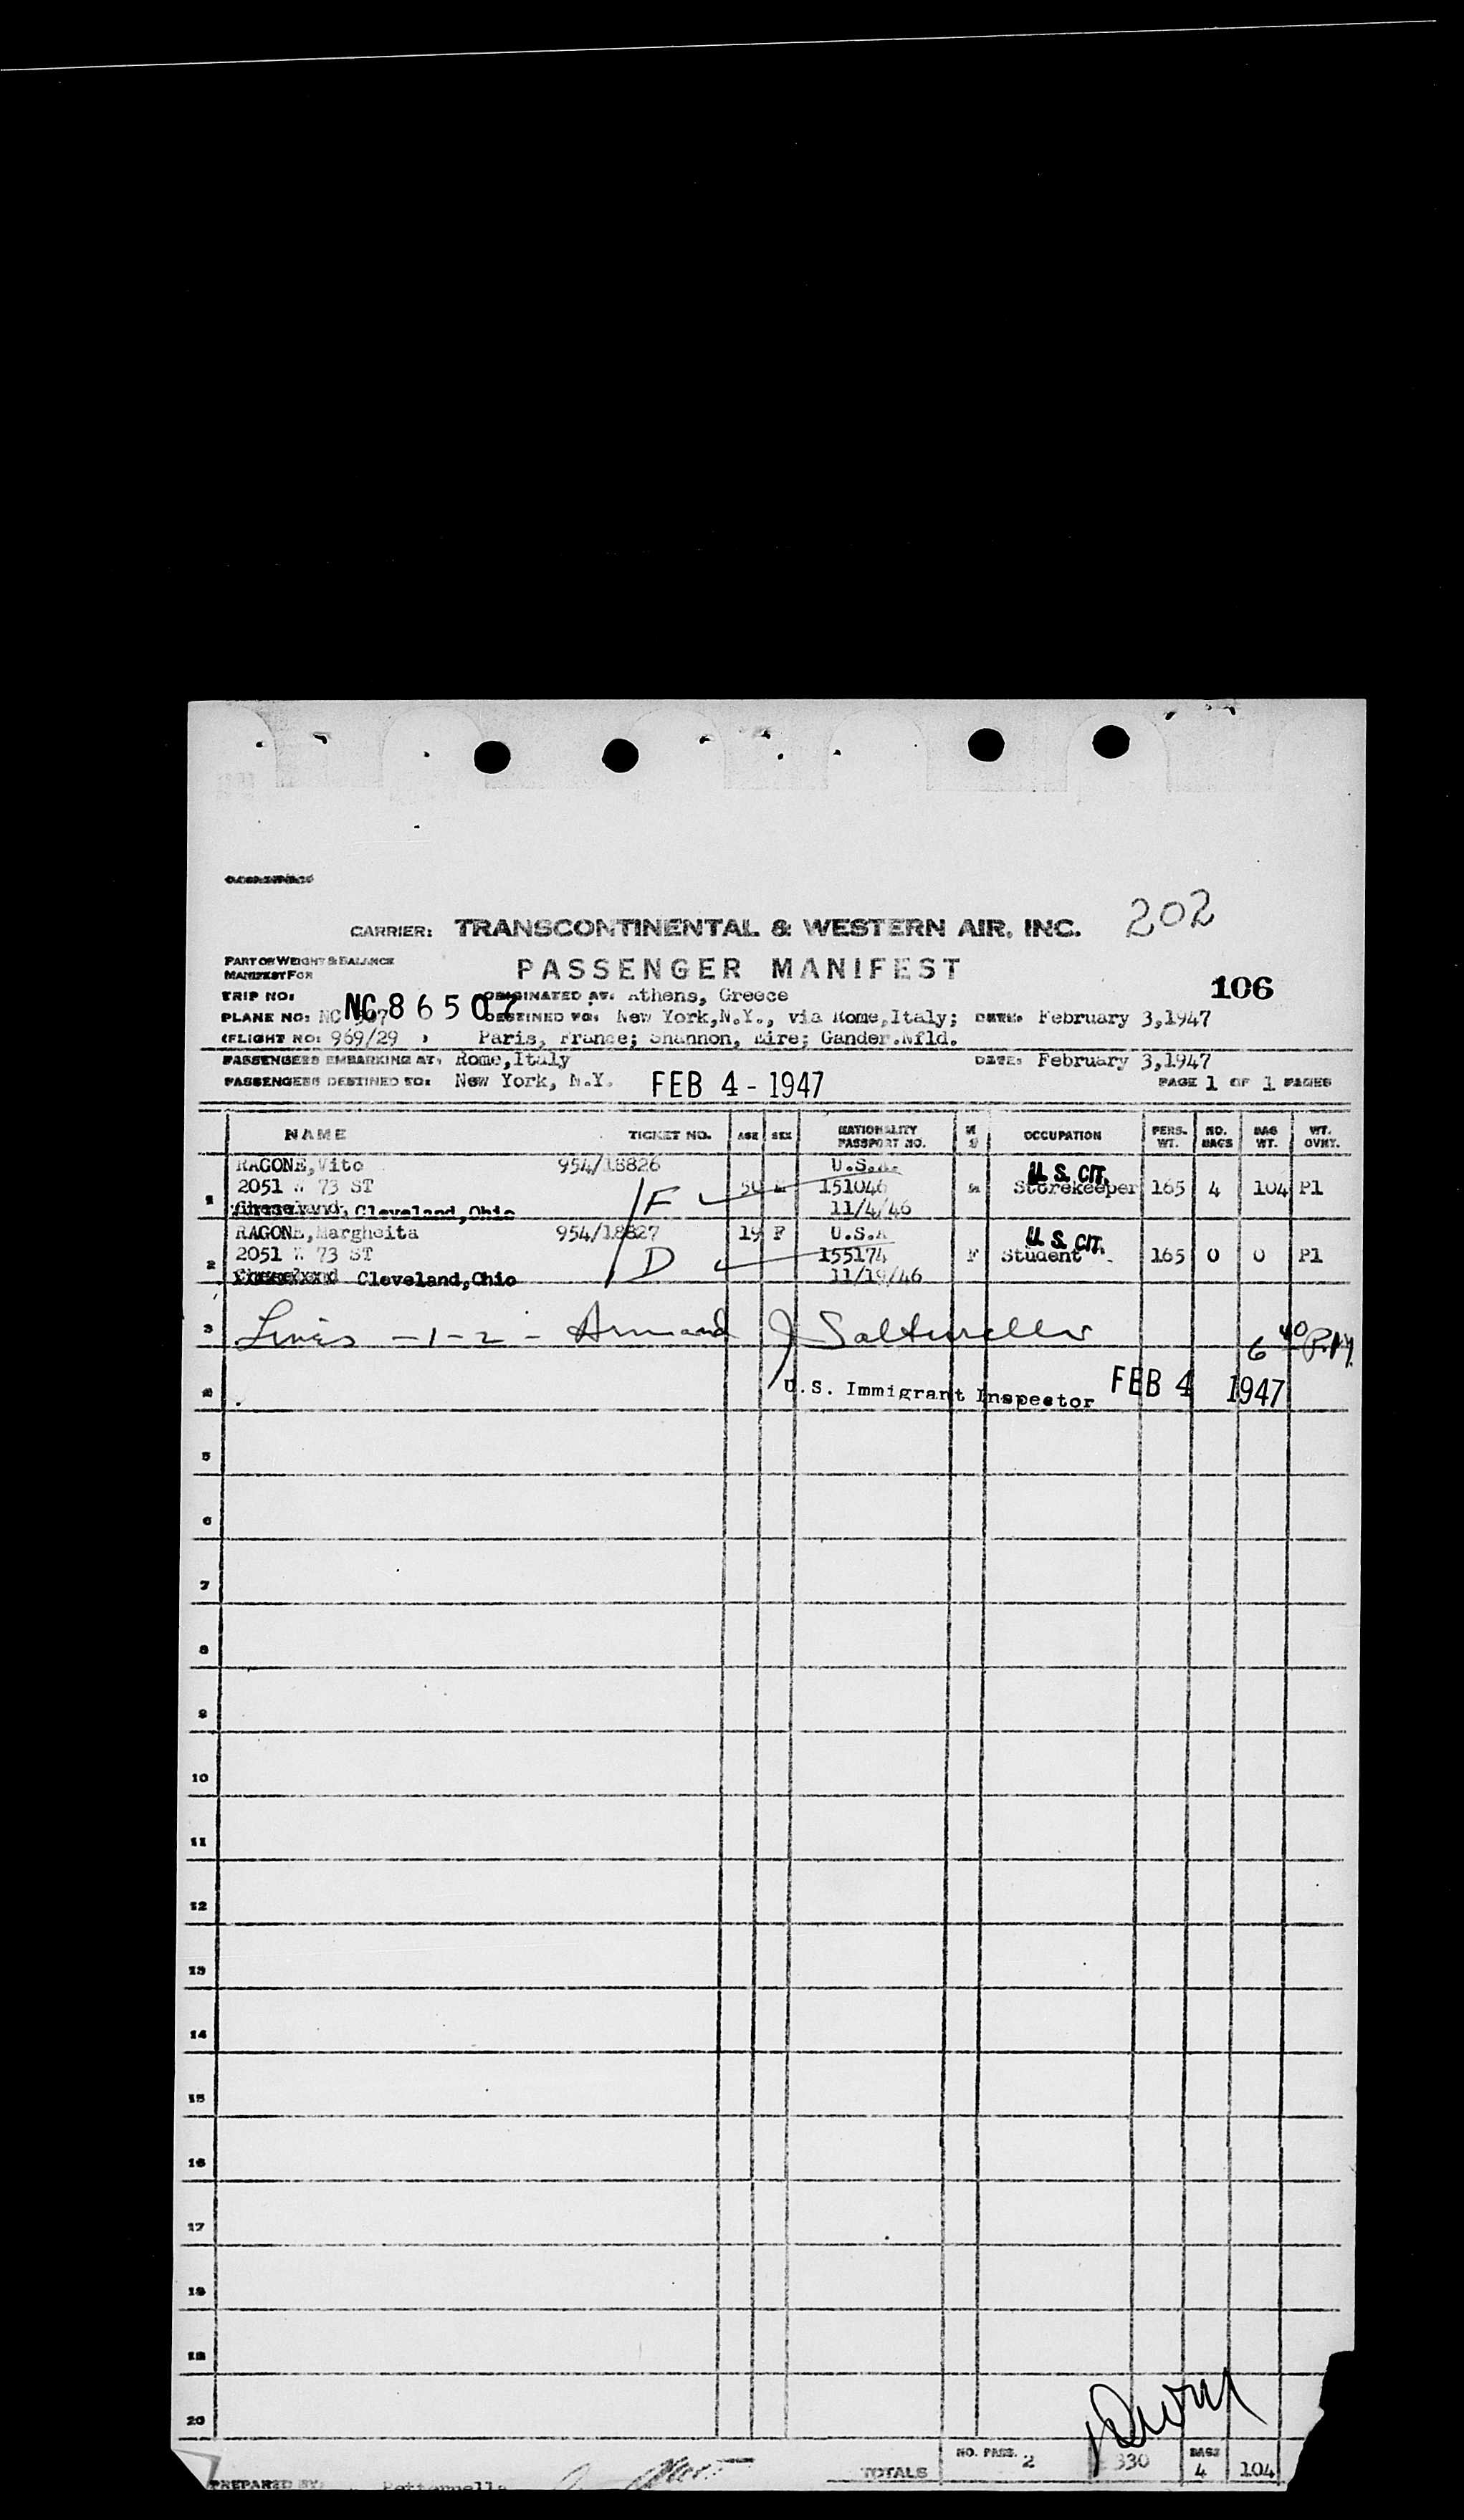 202
CARRIER: TRANSCONTINENTAL & WESTERN AIR, INC.
PART OF WEIGHT & BALANCE
MANIFEST FOR
PASSENGER MANIFEST
106
TRIP NO: ORIGINATED AT: Athens, Greece
NC86507
PLANE NO: NC 507 DESTINED TO: New York,N.Y., via Rome,Italy; DATE: February 3,1947
(FLIGHT NO: 969/29 ) Paris, France; Shannon, Eire; Gander.Nfld.
PASSENGERS EMBARKING AT: Rome,Italy DATE: February 3,1947
PASSENGERS DESTINED TO: New York, N.Y. FEB 4 - 1947 PAGE 1 OF 1 PAGES
NAME TICKET NO. AGE SEX NATIONALITY PASSPORT NO. OCCUPATION PERS. WT. NO. BAGS BAG WT. WT. OVNT.
RAGONE,Vito 954/18826 U.S.A. U.S. CIT.
2051 W 73 ST F 50 M 151046 M Storekeeper 165 4 104 Pl
1 Cleveland,Ohio 11/4/46
RAGONE,Margheita 954/18827 19 F U.S.A U.S. CIT.
2051 W 73 ST D 155174 F Student 165 0 0 Pl
2 Cleveland,Ohio 11/19/46
3 Lines -1-2- Armand J 6 40 P.M.
4 U.S. Immigrant Inspector FEB 4 1947
5
6
7
8
9
10
11
12
13
14
15
16
17
18
19
20
PREPARED BY: TOTALS NO. PASS. 2 330 BAGS 4 104